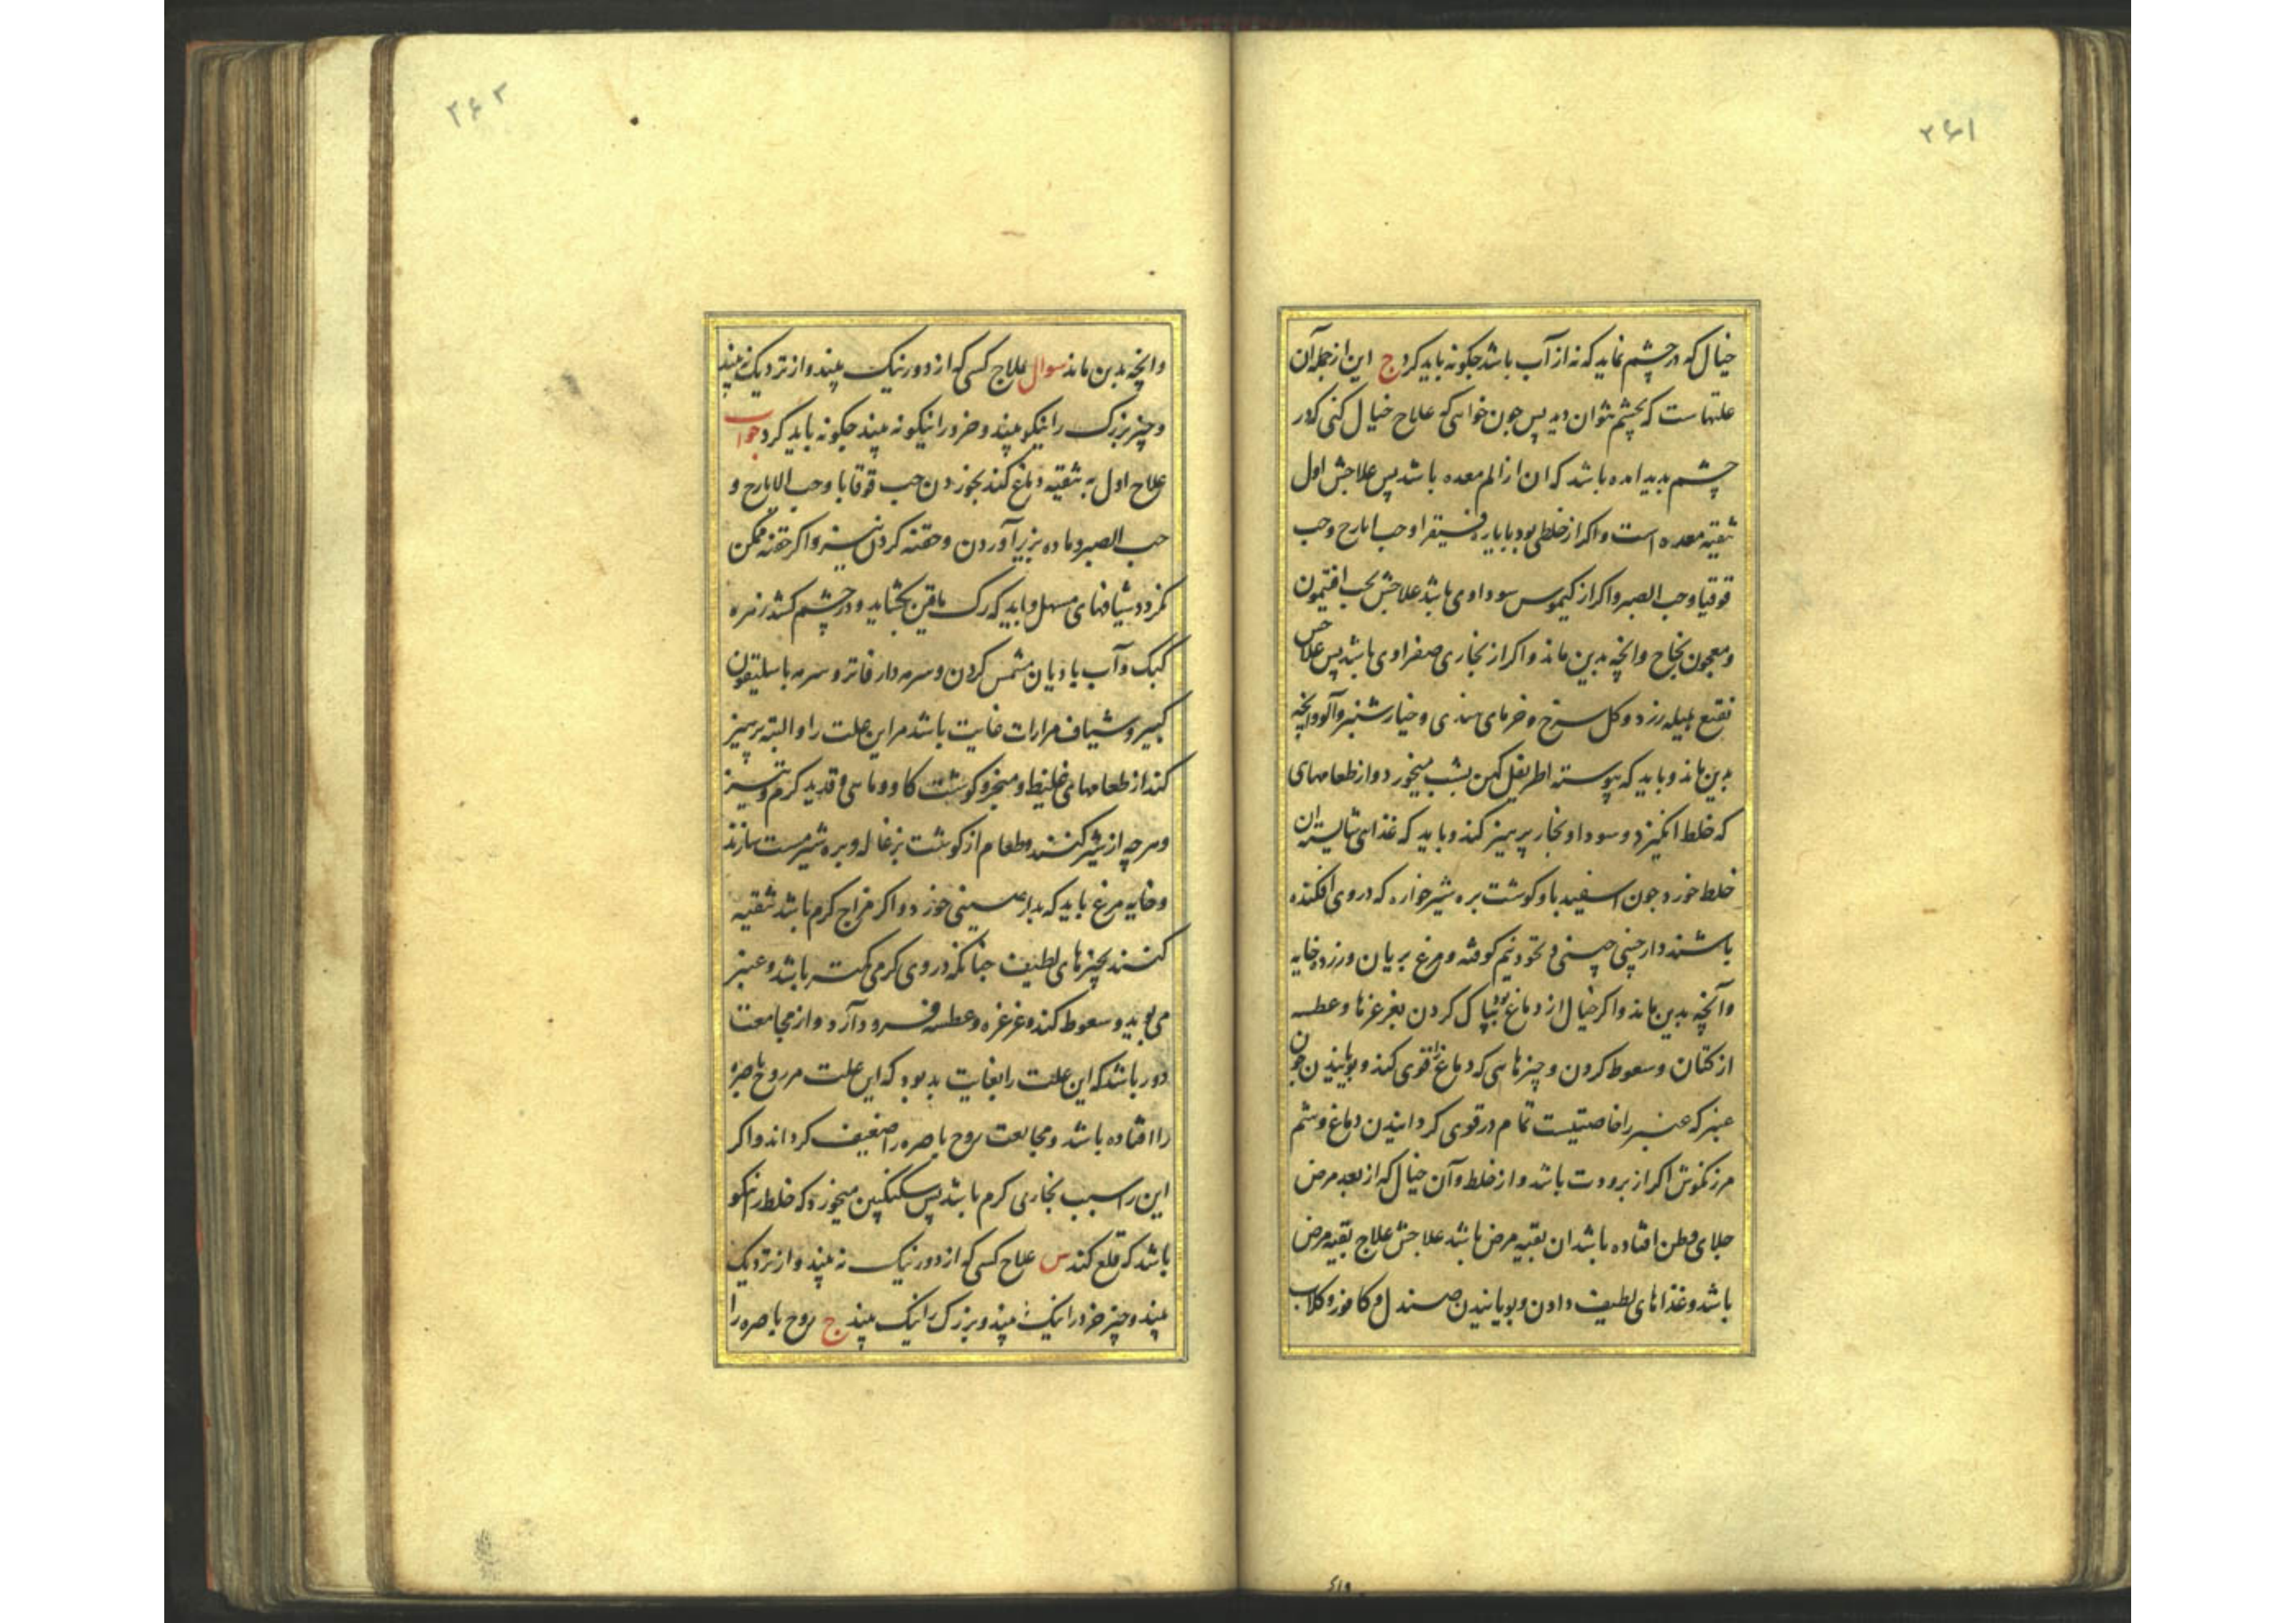 ۲۶۱
خیال که در چشم نماید که نه از آب باشد چکونه باید کرد ج این از جمله آن
علتهاست که بچشم نتوان دید پس چون خواهی که علاج خیال کنی که در
چشم بدید امده باشد که ان از الم معده باشد پس علاجش اول
تنقیه معده است و اکر از خلطی بود بایاره فیقرا و حب ایارج و حب
قوقیا و حب الصبر و اکر از کیموس سوداوی باشد علاجش بحب افتیمون
و معجون نجاح وانچه بدین ماند و اکر از بخاری صفراوی باشد پس علاجش
نقیع هلیله زرد و کل سرخ و خرمای هندی و خیارشنبر و آلو وانچه
بدین ماند و باید که پیوسته اطریفل کهن بشب میخورد و از طعامهای
که خلط انکیزد و سودا و بخار پرهیز کند و باید که غذای شایسته ان
خلط خورد چون اسفیدبا و کوشت بره شیرخواره که در وی افکنده
باشند دارچینی چینی و نخود نیم کوفته و مرغ بریان و زرده خایه
وآنچه بدین ماند و اکر خیال از دماغ بود بپاک کردن بغرغرها و عطسه
از کتان و سعوط کردن و چیزهایی که دماغ را قوی کند و بویانیدن چون
عنبر که عنبر را خاصیتیست تمام در قوی کردانیدن دماغ و شم
مرزنکوش اکر از برودت باشد و از خلط و آن خیال که از بعد مرض
جلای وطن افتاده باشد ان بقیه مرض باشد علاجش علاج بقیه مرض
باشد و غذاهای لطیف دادن و بویانیدن صندل و کافور و کلاب
۲۶۲
وانچه بدین ماند سوال علاج کسی که از دور نیک بیند و از نزدیک نه بیند
و چیز بزرک را نیکو بیند و خرد را نیکو نه بیند چکونه باید کرد جواب
علاج اول به تنقیه دماغ کند بخوردن حب قوقایا و حب الایارج و
حب الصبر و ماده بزیر آوردن و حقنه کردن تیز و اکر حقنه ممکن
نکردد شیافهای مسهل و باید که رک ماقین بکشاید و در چشم کشد زهره
کبک و آب بادیان مشمس کردن و سرمه دار فاتر و سرمه باسلیقون
کبیر و شیاف مرارات غایت باشد مر این علت را و البته پرهیز
کند از طعامهای غلیظ و مبخر و کوشت کاو و ماهی و قدید کرم و تیز
و هرچه از شیر کنند و طعام از کوشت بزغاله و بره شیرمست سازند
و خایه مرغ باید که بدارصینی خورد و اکر مزاج کرم باشد تنقیه
کنند بچیزهای لطیف چنانکه در وی کرمی کمتر باشد و عنبر
می بوید و سعوط کند و غرغره و عطسه فرود آرد و از مجامعت
دور باشد که این علت را بغایت بد بود که این علت مر روح باصره
را افتاده باشد و مجامعت روح باصره را ضعیف کرداند و اکر
این را سبب بخاری کرم باشد پس سکنکبین میخورد که خلط را نیکو
باشد که قلع کند س علاج کسی که از دور نیک نه بیند و از نزدیک
بیند و چیز خرد را نیک بیند و بزرک را نیک بیند ج روح باصره را